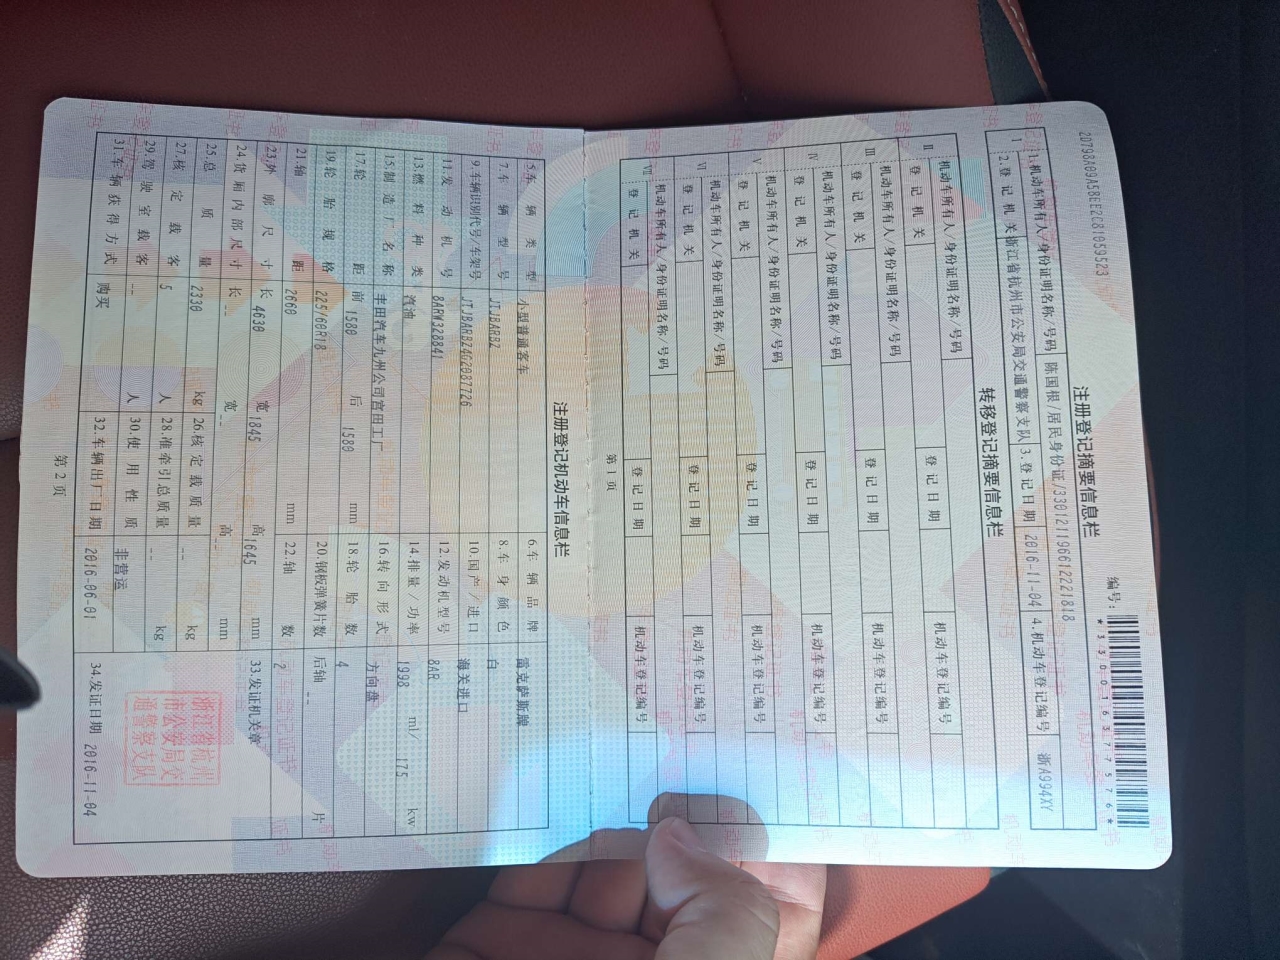 2D798A09A58EE2C81059523
编号:
*330016377576*
注册登记摘要信息栏
I 1.机动车所有人/身份证明名称/号码 陈国根/居民身份证/330121196612221818
2.登记机关 浙江省杭州市公安局交通警察支队 3.登记日期 2016-11-04 4.机动车登记编号 浙A994XY
转移登记摘要信息栏
II 机动车所有人/身份证明名称/号码
登记机关 登记日期 机动车登记编号
III 机动车所有人/身份证明名称/号码
登记机关 登记日期 机动车登记编号
IV 机动车所有人/身份证明名称/号码
登记机关 登记日期 机动车登记编号
V 机动车所有人/身份证明名称/号码
登记机关 登记日期 机动车登记编号
VI 机动车所有人/身份证明名称/号码
登记机关 登记日期 机动车登记编号
VII 机动车所有人/身份证明名称/号码
登记机关 登记日期 机动车登记编号
第1页
注册登记机动车信息栏
5.车辆类型 小型普通客车 6.车辆品牌 雷克萨斯牌
7.车辆型号 JTJBARBZ 8.车身颜色 白
9.车辆识别代号/车架号 JTJBARBZ4G2087726 10.国产/进口 海关进口
11.发动机号 8ARW328841 12.发动机型号 8AR
13.燃料种类 汽油 14.排量/功率 1998 ml/ 175 kw
15.制造厂名称 丰田汽车九州公司宫田工厂 16.转向形式 方向盘
17.轮距 前 1580 后 1580 mm 18.轮胎数 4
19.轮胎规格 225/60R18 20.钢板弹簧片数 后轴 -- 片
21.轴距 2660 mm 22.轴数 2
23.外廓尺寸 长 4630 宽 1845 高 1645 mm 33.发证机关章
24.货厢内部尺寸 长 -- 宽 -- 高 -- mm
25.总质量 2330 kg 26.核定载质量 -- kg
27.核定载客 5 人 28.准牵引总质量 -- kg
29.驾驶室载客 -- 人 30.使用性质 非营运
浙江省杭州
市公安局交
通警察支队
31.车辆获得方式 购买 32.车辆出厂日期 2016-06-01 34.发证日期 2016-11-04
第2页